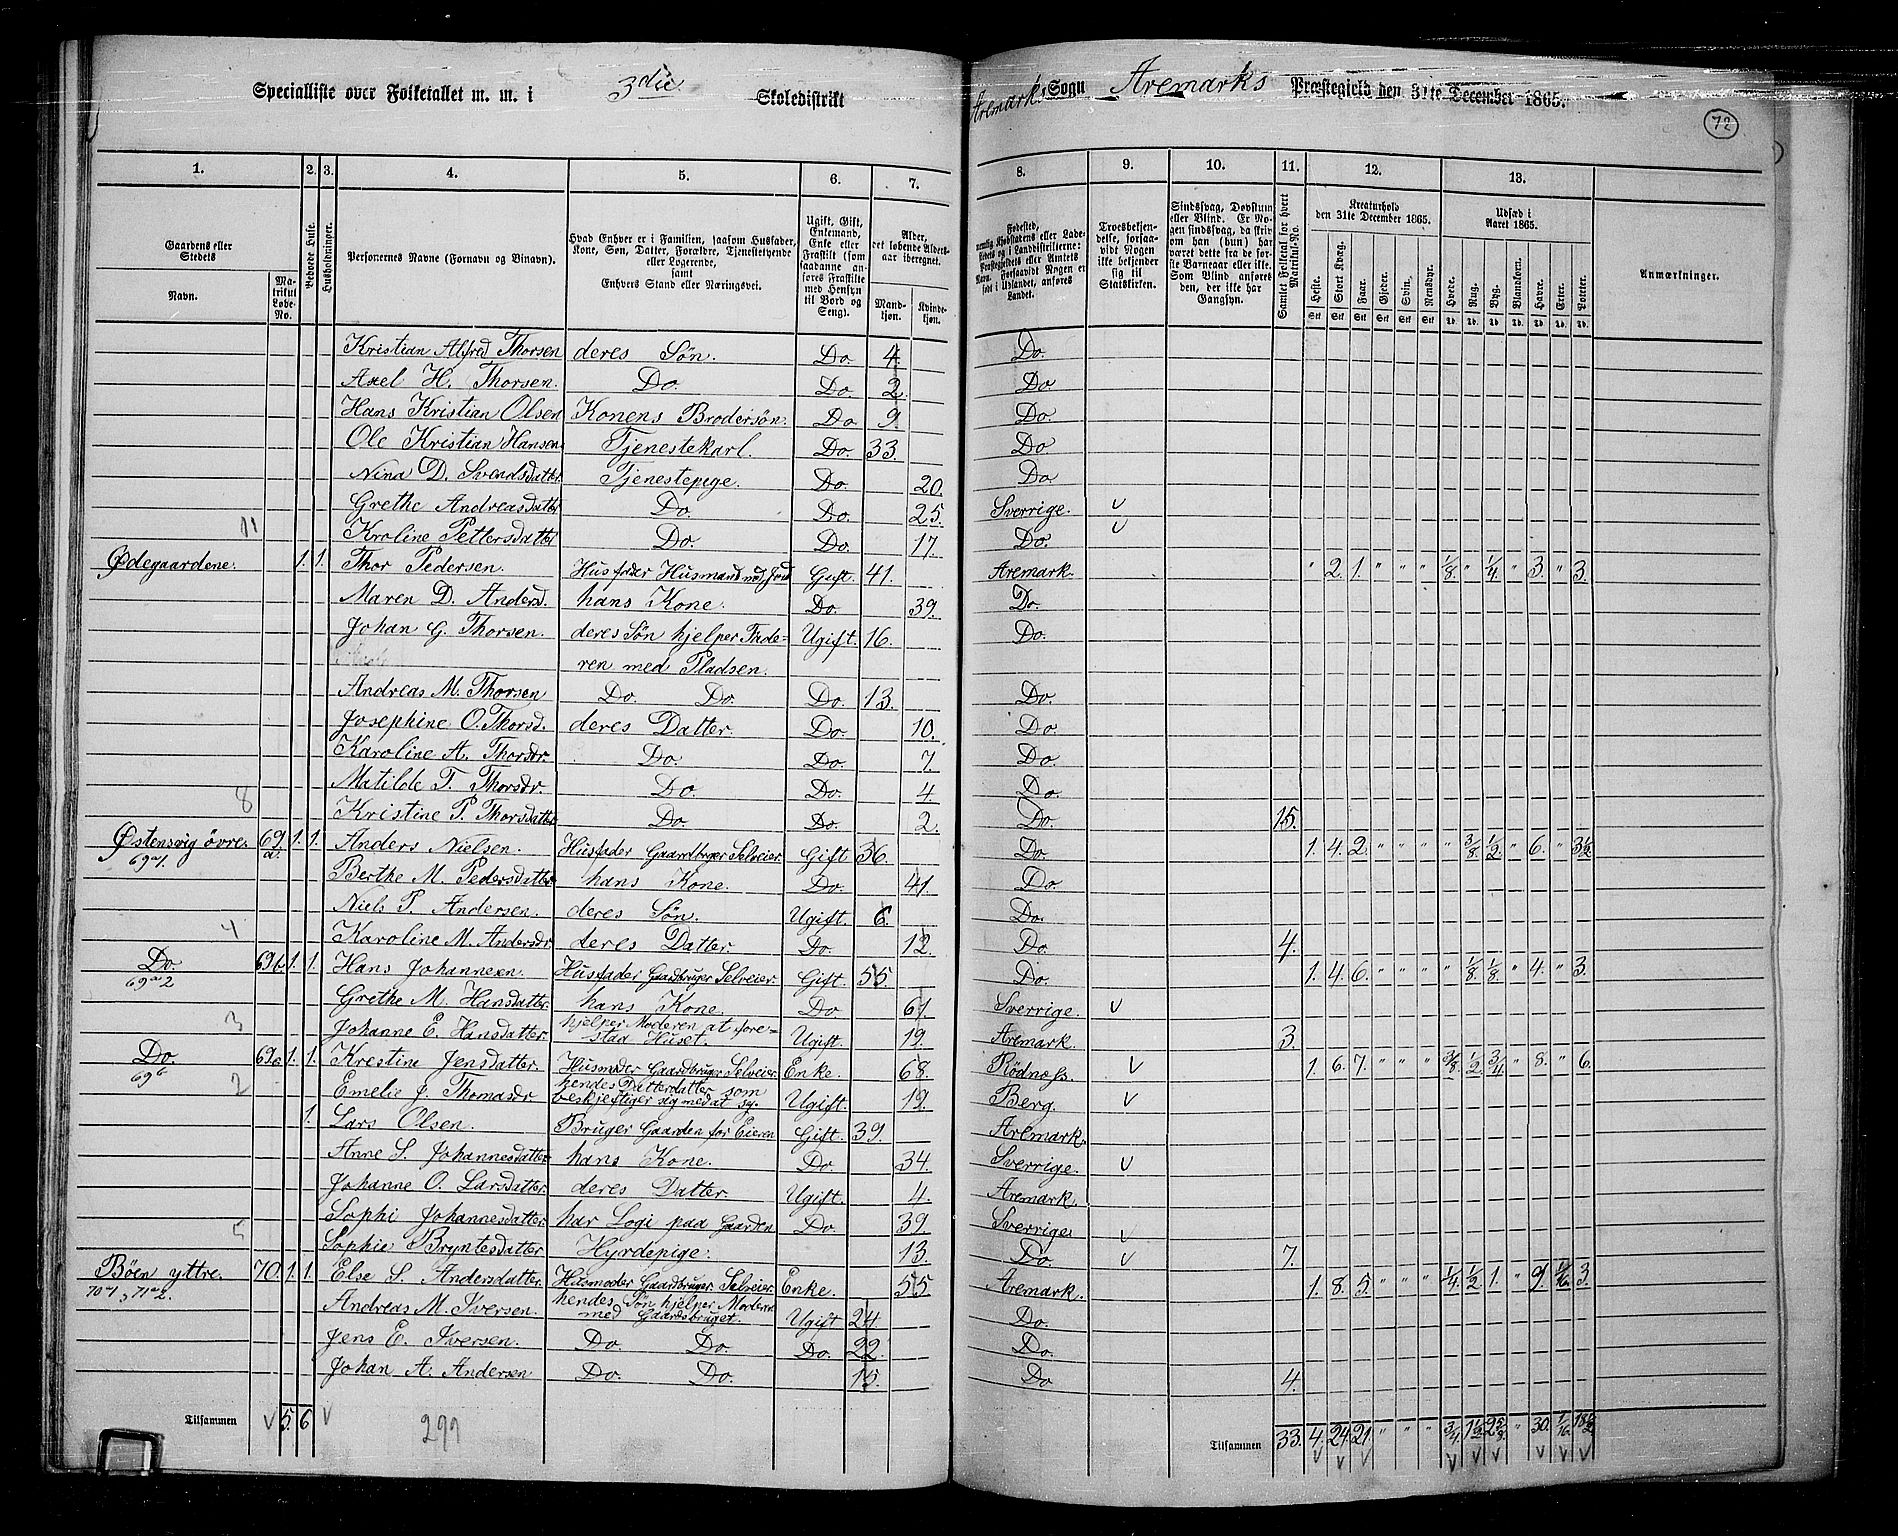 Specialliste over Folketallet m. m. i 3die Skoledistrikt Aremarks Sogn Aremarks Præstegjeld den 31te December 1865.
72
1. 2. 3. 4. 5. 6. 7. 8. 9. 10. 11. 12. 13.
Gaardens eller Stedets Navn. Matrikul Løbe-No. Beboede Huse. Husholdninger. Personernes Navne (Fornavn og Binavn). Hvad Enhver er i Familien, saasom Husfader, Kone, Søn, Datter, Forældre, Tjenestetyende eller Logerende, samt Enhvers Stand eller Næringsvei. Ugift, Gift, Enkemand, Enke eller Fraskilt (som saadanne anføres Fraskilte med Hensyn til Bord og Seng). Alder, det løbende Alders-aar iberegnet. Mandkjøn. Kvindekjøn.
Troesbekjendelse, forsaavidt Nogen ikke bekjender sig til Statskirken. Sindssvag, Døvstum eller Blind. Er Nogen sindssvag, da skrives om han (hun) har været dette fra de første Barneaar eller ikke. Som Blind anføres den, der ikke har Gangsyn. Samlet Folketal for hvert Matrikul-No. Kreaturhold den 31te December 1865. Udsæd i Aaret 1865. Anmærkninger.
Heste. Stort Kvæg. Faar. Gjeder. Svin. Rensdyr. Hvede. Rug. Byg. Blandkorn. Havre. Erter. Poteter.
Kristian Alfred Thorsen deres Søn. Do. 4. Do.
Axel H. Thorsen. Do. Do. 2. Do
Hans Kristian Olsen Konens Brodersøn. Do 9. Do.
Ole Kristian Hansen Tjenestekarl. Do. 33. Do
Nina D. Svendsdatter Tjenestepige. Do. 20. Do
Grethe Andreasdatter Do. Do. 25. Sverrige. v
11 Kroline Pettersdatter Do. Do. 17. Do. v
Ødegaardene. 1. 1. Thor Pedersen. Husfader Husmand med Jord Gift. 41. Aremark. " 2. 1. " " " 1/8. " 1/4. " 3. " 3.
Maren D. Andersd. hans Kone. Do. 39. Do.
Johan G. Thorsen. deres Søn hjelper Fade- Ugift. 16. Do.
ren med Pladsen.
Andreas M. Thorsen Do. Do. Do. 13. Do.
Josephine O. Thorsd. deres Datter. Do. 10. Do
Karoline A. Thorsdr. Do. Do. 7. Do.
8 Matilde T. Thorsdr. Do. Do. 4. Do.
Kristine P. Thorsdatter Do. Do. 2. Do. 15.
Østensvig övre. 69a. 1. 1. Anders Nielsen. Husfader Gaardbruger Selveier. Gift 36. Do. 1. 4. 2. " " " " 3/8. 1/2. " 6. " 3 1/2
69a1.
Berthe M. Pedersdatter hans Kone. Do. 41. Do.
Niels P. Andersen. deres Søn. Ugift. 6. Do.
4 Karoline M. Andersdr. deres Datter. Do. 12. Do. 4.
Do. 69b 1. 1. Hans Johannesen. Husfader Gaardbruger Selveier. Gift 55. Do. 1. 4. 6. " " " " 1/8. 1/8. " 4. " 3.
69a2
Grethe M. Hansdatter. hans Kone. Do 61. Sverrige. v
3 Johanne E. Hansdatter. hjelper Moderen at fore- Ugift. 19. Aremark. 3.
staa Huset.
Do. 69c 1. 1. Krestine Jensdatter. Husmoder Gaardbruger Selveier Enke. 68. Rödness. v 1. 6. 7. " " " 3/8. 1/2. 3/4. " 8. " 6.
69b
2 Emelie J. Thomasdr hendes Datterdatter som Ugift. 19. Berg. v
beskjeftiger sig med at sy.
1. Lars Olsen. Bruger Gaarden for Eieren Gift. 39. Aremark.
Anne S. Johannesdatter hans Kone. Do. 34. Sverrige. v
Johanne O. Larsdatter. deres Datter. Ugift. 4. Aremark.
5 Sophi Johannesdatter har Logi paa Gaarden Do. 39. Sverrige. v
Sophie Bryntesdatter Hyrdepige. 13. Do. v 7.
Böen yttre. 70. 1. 1. Else S. Andersdatter. Husmoder Gaardbruger Selveier Enke. 55. Aremark. 1. 8. 5. " " " 1/4. 1/2. 1. " 9. 1/16. 3.
70a1, 71a2.
Andreas M. Iversen. hendes Søn hjelper Moderen Ugift 24 Do.
med Gaardsbruget.
Jens E. Iversen. Do. Do. Do. 22. Do.
Johan A. Andersen Do. Do. 15. Do 4.
Tilsammen v 5. 6 v 299 Tilsammen 33. 4. 24. 21. " " " 3/4. 1 1/2 2 5/8. " 30. 1/16. 18 1/2